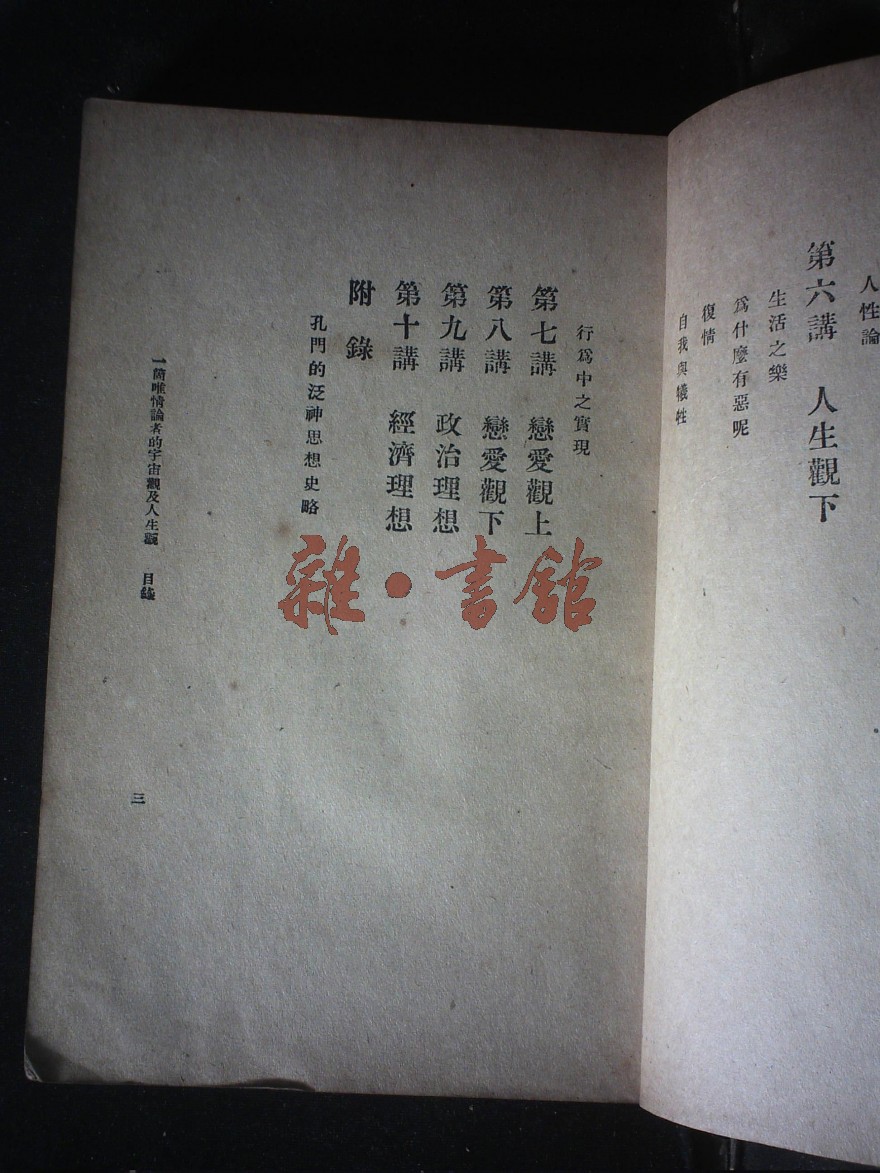 人性論
第六講　人生觀下
生活之樂
爲什麼有惡呢
復情
自我與犧牲
行爲中之實現
第七講　戀愛觀上
第八講　戀愛觀下
第九講　政治理想
第十講　經濟理想
附錄
孔門的泛神思想史略
一個唯情論者的宇宙觀及人生觀　目錄
三
雜·書館